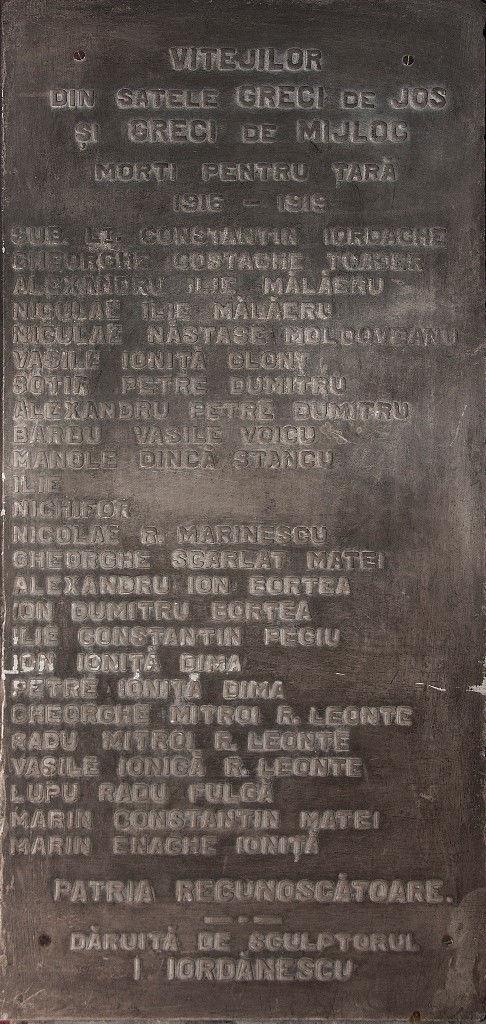 VITEJILOR
DIN SATELE GRECI DE JOS
ȘI GRECI DE MIJLOC
MORȚI PENTRU ȚARĂ
1916 – 1919
SUB. LT. CONSTANTIN IORDACHE
GHEORGHE COSTACHE TOADER
ALEXANDRU ILIE MĂLĂERU
NICULAE ILIE MĂLĂERU
NICULAE NĂSTASE MOLDOVEANU
VASILE IONIȚĂ CLONȚ
SOTIR PETRE DUMITRU
ALEXANDRU PETRE DUMITRU
BARBU VASILE VOICU
MANOLE DINCĂ STANCU
ILIE
NICHIFOR
NICOLAE R. MARINESCU
GHEORGHE SCARLAT MATEI
ALEXANDRU ION BORTEA
ION DUMITRU BORTEA
ILIE CONSTANTIN PECIU
ION IONIȚĂ DIMA
PETRE IONIȚĂ DIMA
GHEORGHE MITROI R. LEONTE
RADU MITROI R. LEONTE
VASILE IONICĂ R. LEONTE
LUPU RADU FULGĂ
MARIN CONSTANTIN MATEI
MARIN ENACHE IONIȚĂ
PATRIA RECUNOSCĂTOARE.
DĂRUITĂ DE SCULPTORUL
I IORDĂNESCU